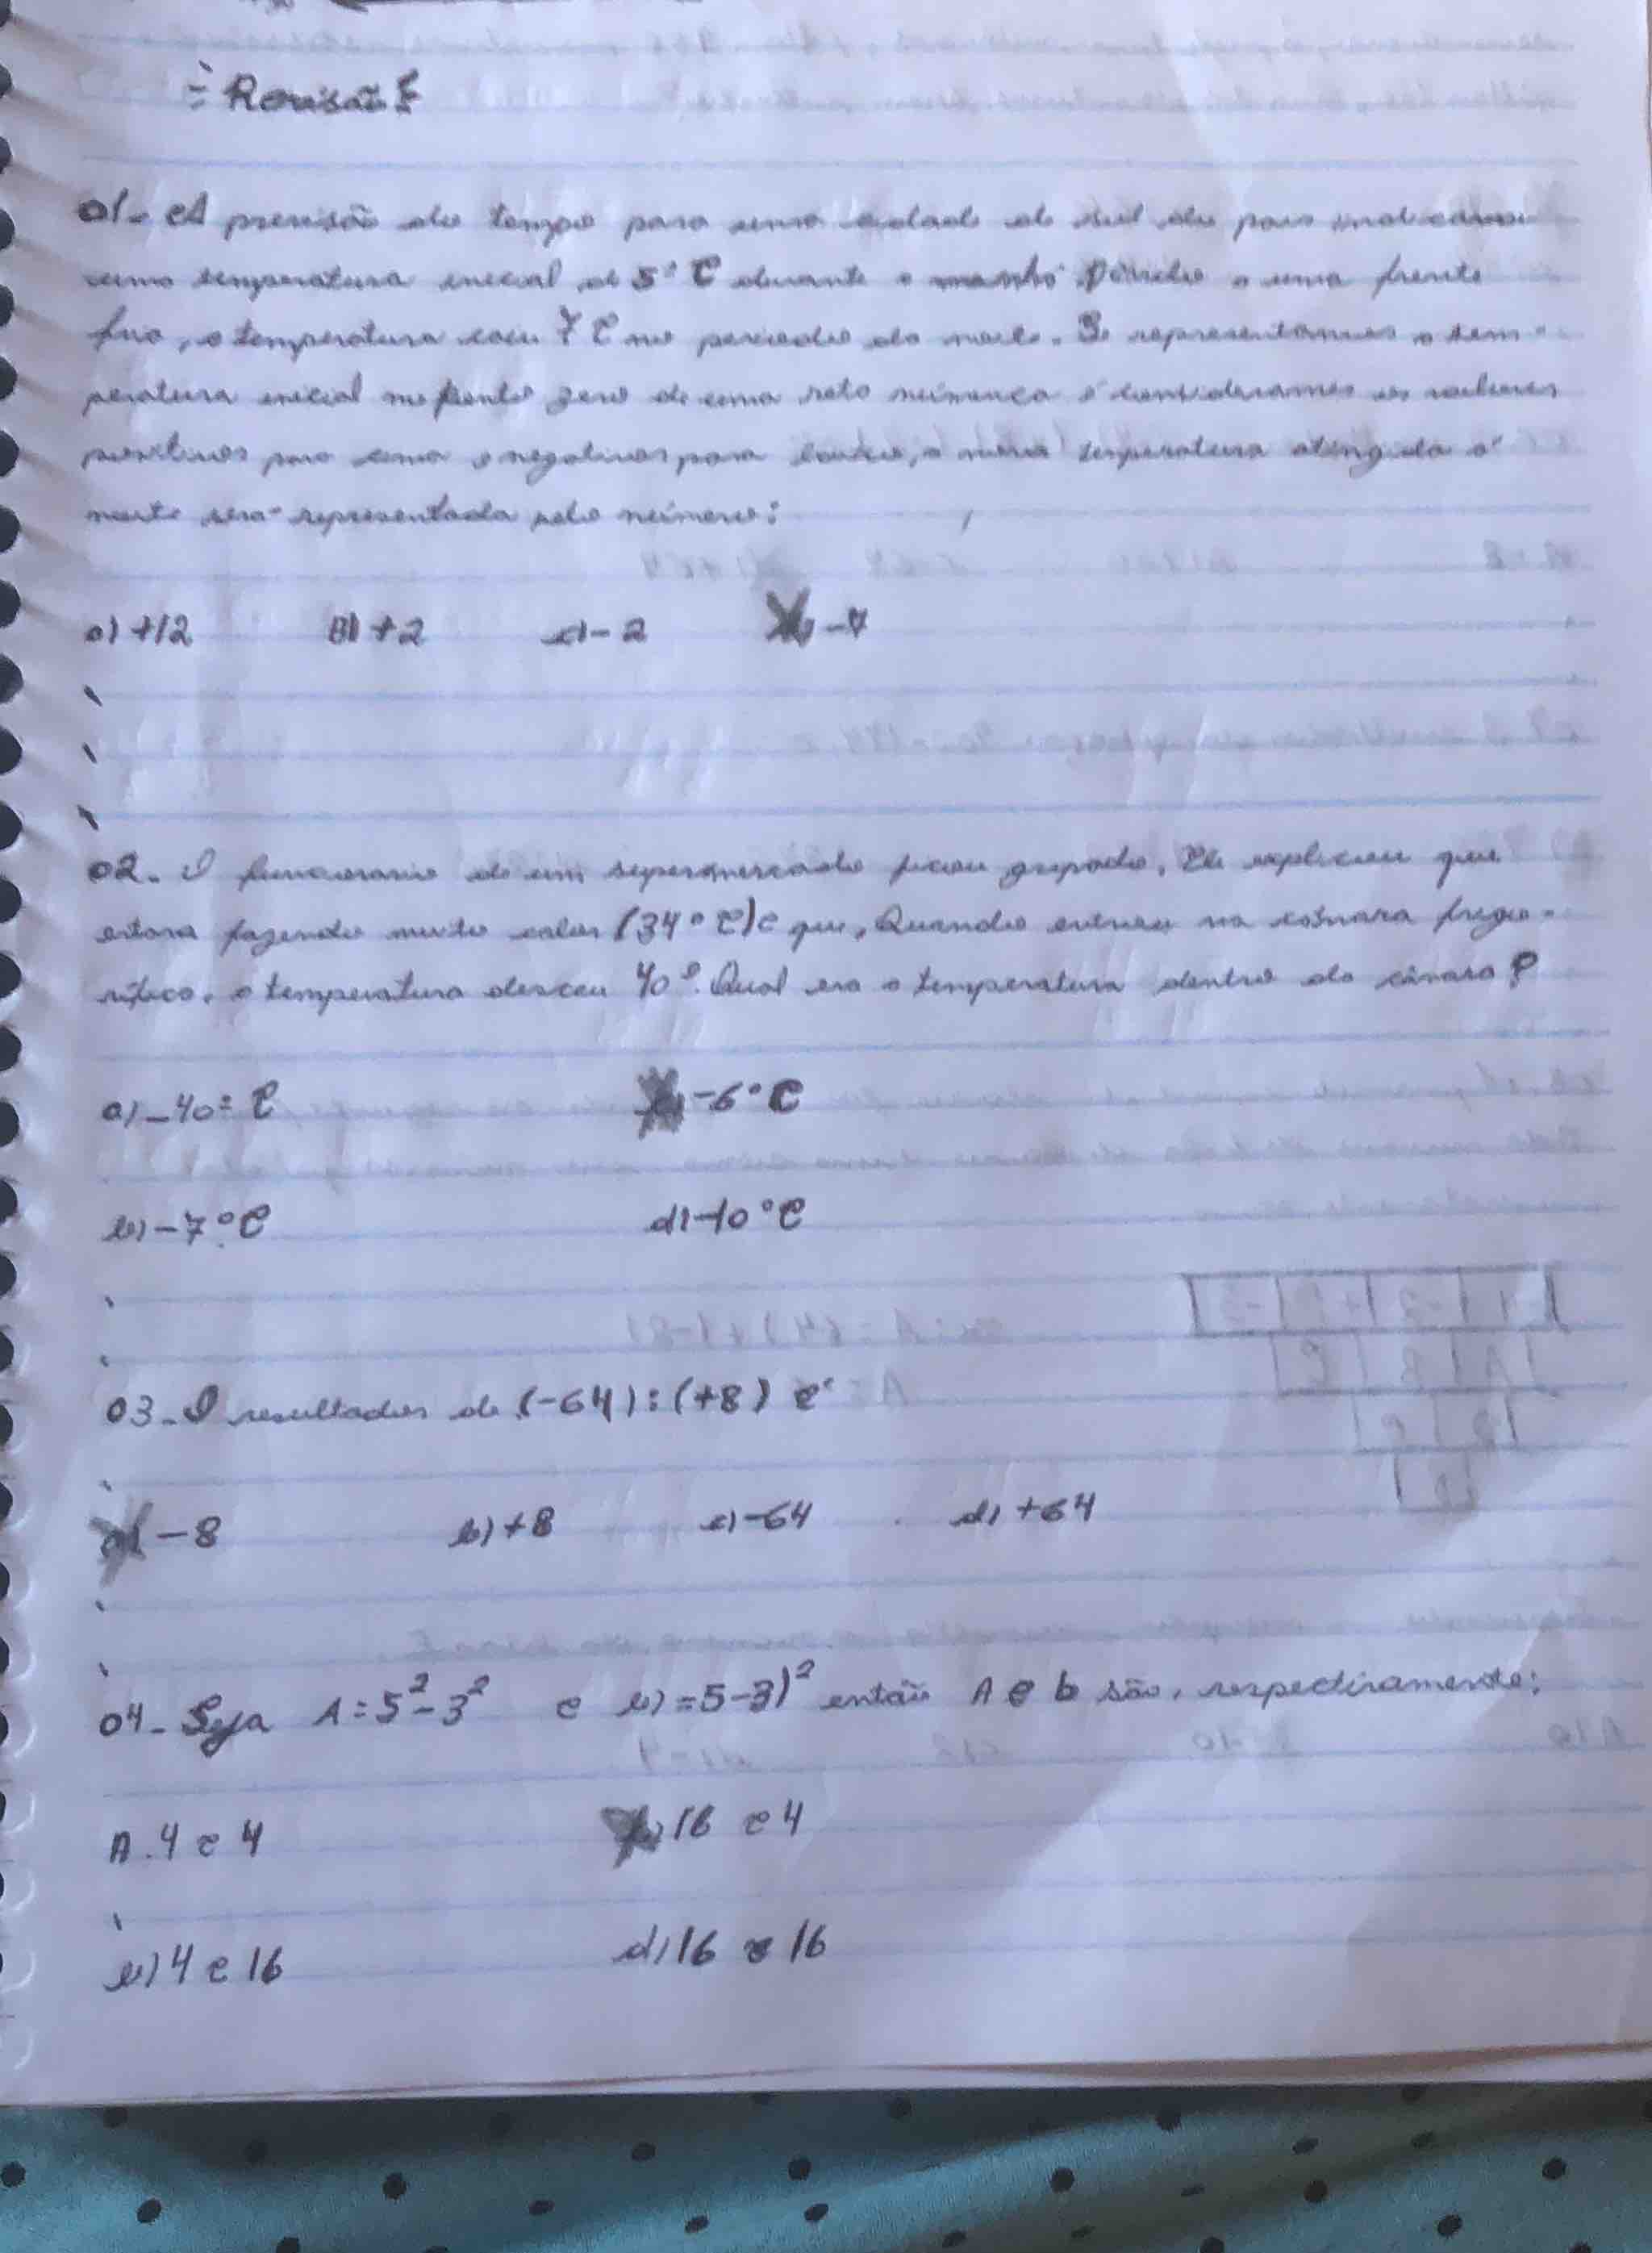 Revisão
01- A previsão do tempo para uma cidade do sul do pais indicava
uma temperatura inicial de 5° C durante a manhã. Devido a uma frente
fria, a temperatura caiu 7 C no periodo da noite. Se representamos a tem-
peratura inicial no ponto zero de uma reta númerica e consideramos os valores
positivos para cima e negativos para baixo, a nova temperatura atingida a
noite será representada pelo número:
a) +12 B) +2 c) -2 -7
02- O funcionario de um supermercado ficou gripado. Ele explicou que
estava fazendo muito calor (34° C) e que, Quando entrou na câmara frigo-
rifica, a temperatura desceu 40°. Qual era a temperatura dentro da câmara?
a) -40° C -6° C
b) -7° C d) -10 °C
03- O resultados de (-64) : (+8) e'
a) -8 b) +8 c) -64 d) +64
04- Seja A = 5² - 3² e b) = 5-3)² então A e b são, respectivamente:
A. 4 e 4 16 e 4
b) 4 e 16 d) 16 e 16